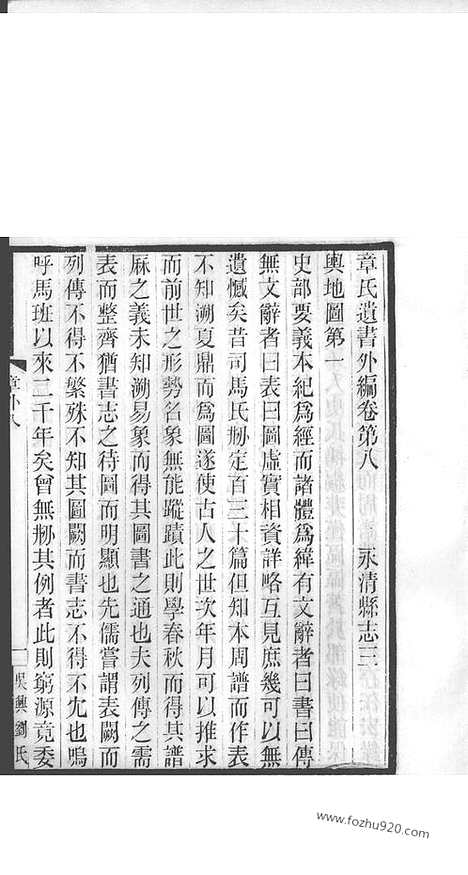 章氏遺書外編卷第八　永清縣志三
輿地圖第一
史部要義本紀爲經而諸體爲緯有文辭者曰書曰傳
無文辭者曰表曰圖虛實相資詳略互見庶幾可以無
遺憾矣昔司馬氏刱定百三十篇但知本周譜而作表
不知溯夏鼎而爲圖遂使古人之世次年月可以推求
而前世之形勢名象無能蹤蹟此則學春秋而得其譜
厤之義未知溯易象而得其圖書之通也夫列傳之需
表而整齊猶書志之待圖而明顯也先儒嘗謂表闕而
列傳不得不繁殊不知其圖闕而書志不得不冘也嗚
呼馬班以來二千年矣曾無刱其例者此則窮源竟委
章外八
吳興劉氏
www.fozhu920.com